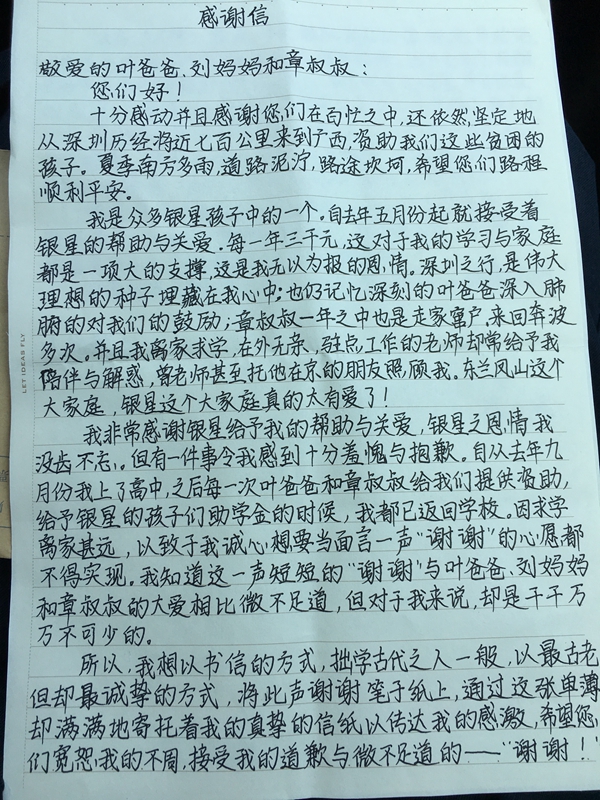 感谢信
敬爱的叶爸爸、刘妈妈和章叔叔：
您们好！
十分感动并且感谢您们在百忙之中，还依然坚定地
从深圳历经将近七百公里来到广西，资助我们这些贫困的
孩子。夏季南方多雨，道路泥泞，路途坎坷，希望您们路程
顺利平安。
我是众多银星孩子中的一个。自去年五月份起就接受着
银星的帮助与关爱。每一年三千元，这对于我的学习与家庭
都是一项大的支撑，这是我无以为报的恩情。深圳之行，是伟大
理想的种子埋藏在我心中；也仍记忆深刻的叶爸爸深入肺
腑的对我们的鼓励；章叔叔一年之中也是走家窜户，来回奔波
多次。并且我离家求学，在外无亲，驻点工作的老师却常给予我
陪伴与解惑，曾老师甚至托他在京的朋友照顾我。东兰凤山这个
大家庭，银星这个大家庭真的太有爱了！
我非常感谢银星给予我的帮助与关爱，银星之恩情我
没齿不忘。但有一件事令我感到十分羞愧与抱歉。自从去年九
月份我上了高中，之后每一次叶爸爸和章叔叔给我们提供资助，
给予银星的孩子们助学金的时候，我都已返回学校。因求学
离家甚远，以致于我诚心想要当面言一声“谢谢”的心愿都
不得实现。我知道这一声短短的“谢谢”与叶爸爸、刘妈妈
和章叔叔的大爱相比微不足道，但对于我来说，却是千千万
万不可少的。
所以，我想以书信的方式，拙学古代之人一般，以最古老
但却最诚挚的方式，将此声谢谢笔于纸上，通过这张单薄
却满满地寄托着我的真挚的信纸以传达我的感激，希望您
们宽恕我的不周，接受我的道歉与微不足道的——“谢谢！”
LET IDEAS FLY